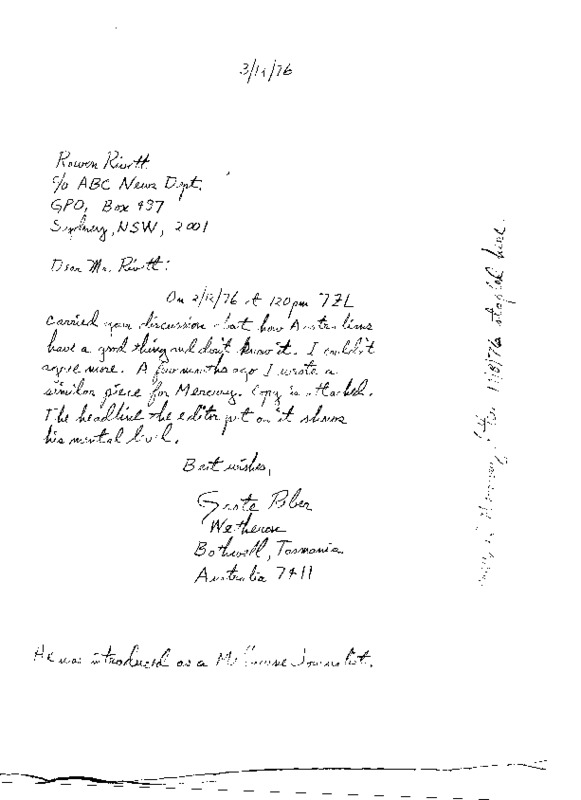 3/12/76
Rowen Rivett
c/o ABC News Dept.
GPO, Box 437
Sydney, NSW, 2001
Dear Mr. Rivett:
On 2/12/76 at 120 pm 7ZL
carried your discussion about how Australians
have a good thing and don't know it. I couldn't
agree more. A few months ago I wrote a
similar piece for Mercury. Copy is attached.
The headline the editor put on it shows
his mental level.
Best wishes,
Grote Reber
Wetheron
Bothwell, Tasmania
Australia 7411
He was introduced as a Melbourne Journalist.
Mercury 11/8/76 stapled here.